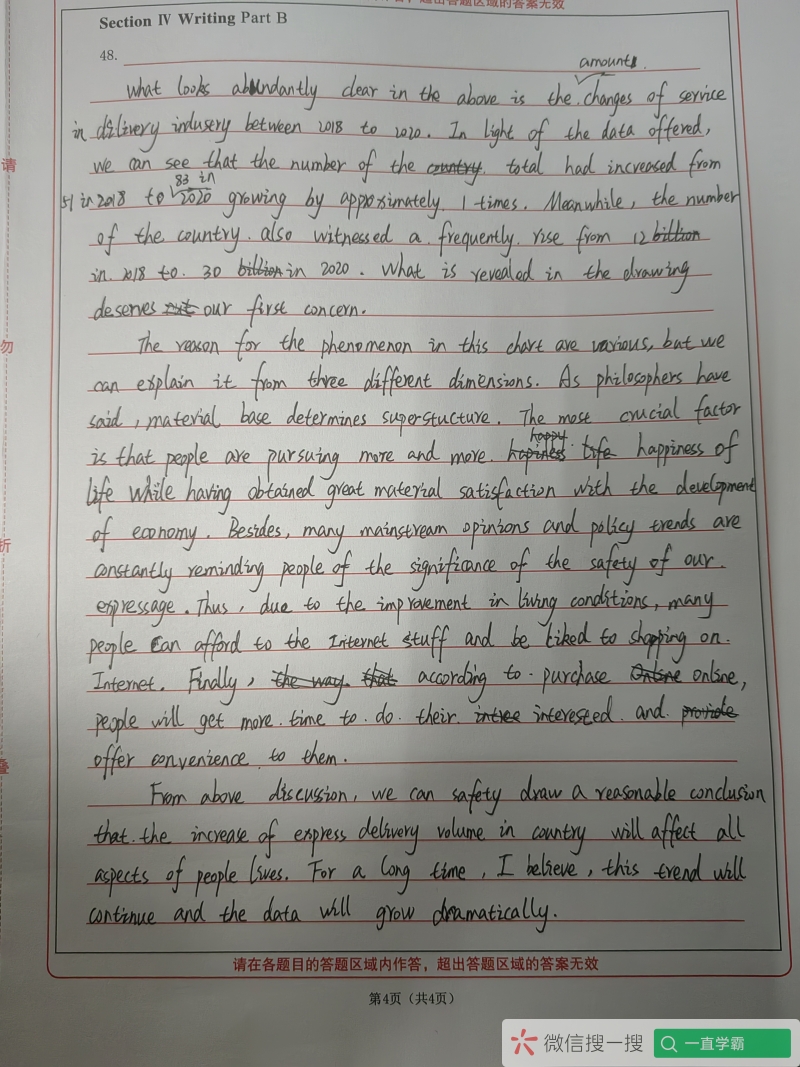 超出答题区域的答案无效
Section Ⅳ Writing Part B
48.
amounts
What looks abundantly clear in the above is the changes of service
in dilivery indusery between 2018 to 2020. In light of the data offered,
we can see that the number of the country total had increased from
83 in
51 in 2018 to 2020 growing by approximately 1 times. Meanwhile, the number
of the country also witnessed a frequently rise from 12 billion
in 2018 to 30 billion in 2020. What is revealed in the drawing
deserves our first concern.
The reason for the phenomenon in this chart are various, but we
can explain it from three different dimensions. As philosophers have
said, material base determines superstucture. The most crucial factor
happy
is that people are pursuing more and more hapiness life happiness of
life while having obtained great material satisfaction with the development
of economy. Besides, many mainstream opinions and policy trends are
constantly reminding people of the significance of the safety of our
expressage. Thus, due to the improvement in living conditions, many
people can afford to the Internet stuff and be liked to shopping on
Internet. Finally, the way that according to purchase Online online,
people will get more time to do their intree interested and provide
offer convenience to them.
From above discussion, we can safety draw a reasonable conclusion
that the increase of express delivery volume in country will affect all
aspects of people lives. For a long time, I believe, this trend will
continue and the data will grow dramatically.
请在各题目的答题区域内作答，超出答题区域的答案无效
第4页（共4页）
请
勿
折
叠
微信搜一搜
一直学霸